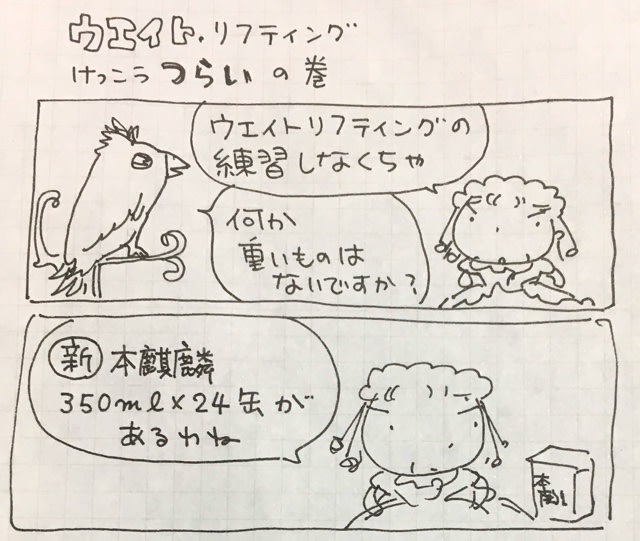 ウエイト・リフティング
けっこうつらいの巻
ウエイトリフティングの
練習しなくちゃ
何か
重いものは
ないですか?
新 本麒麟
350ml×24缶が
あるわね